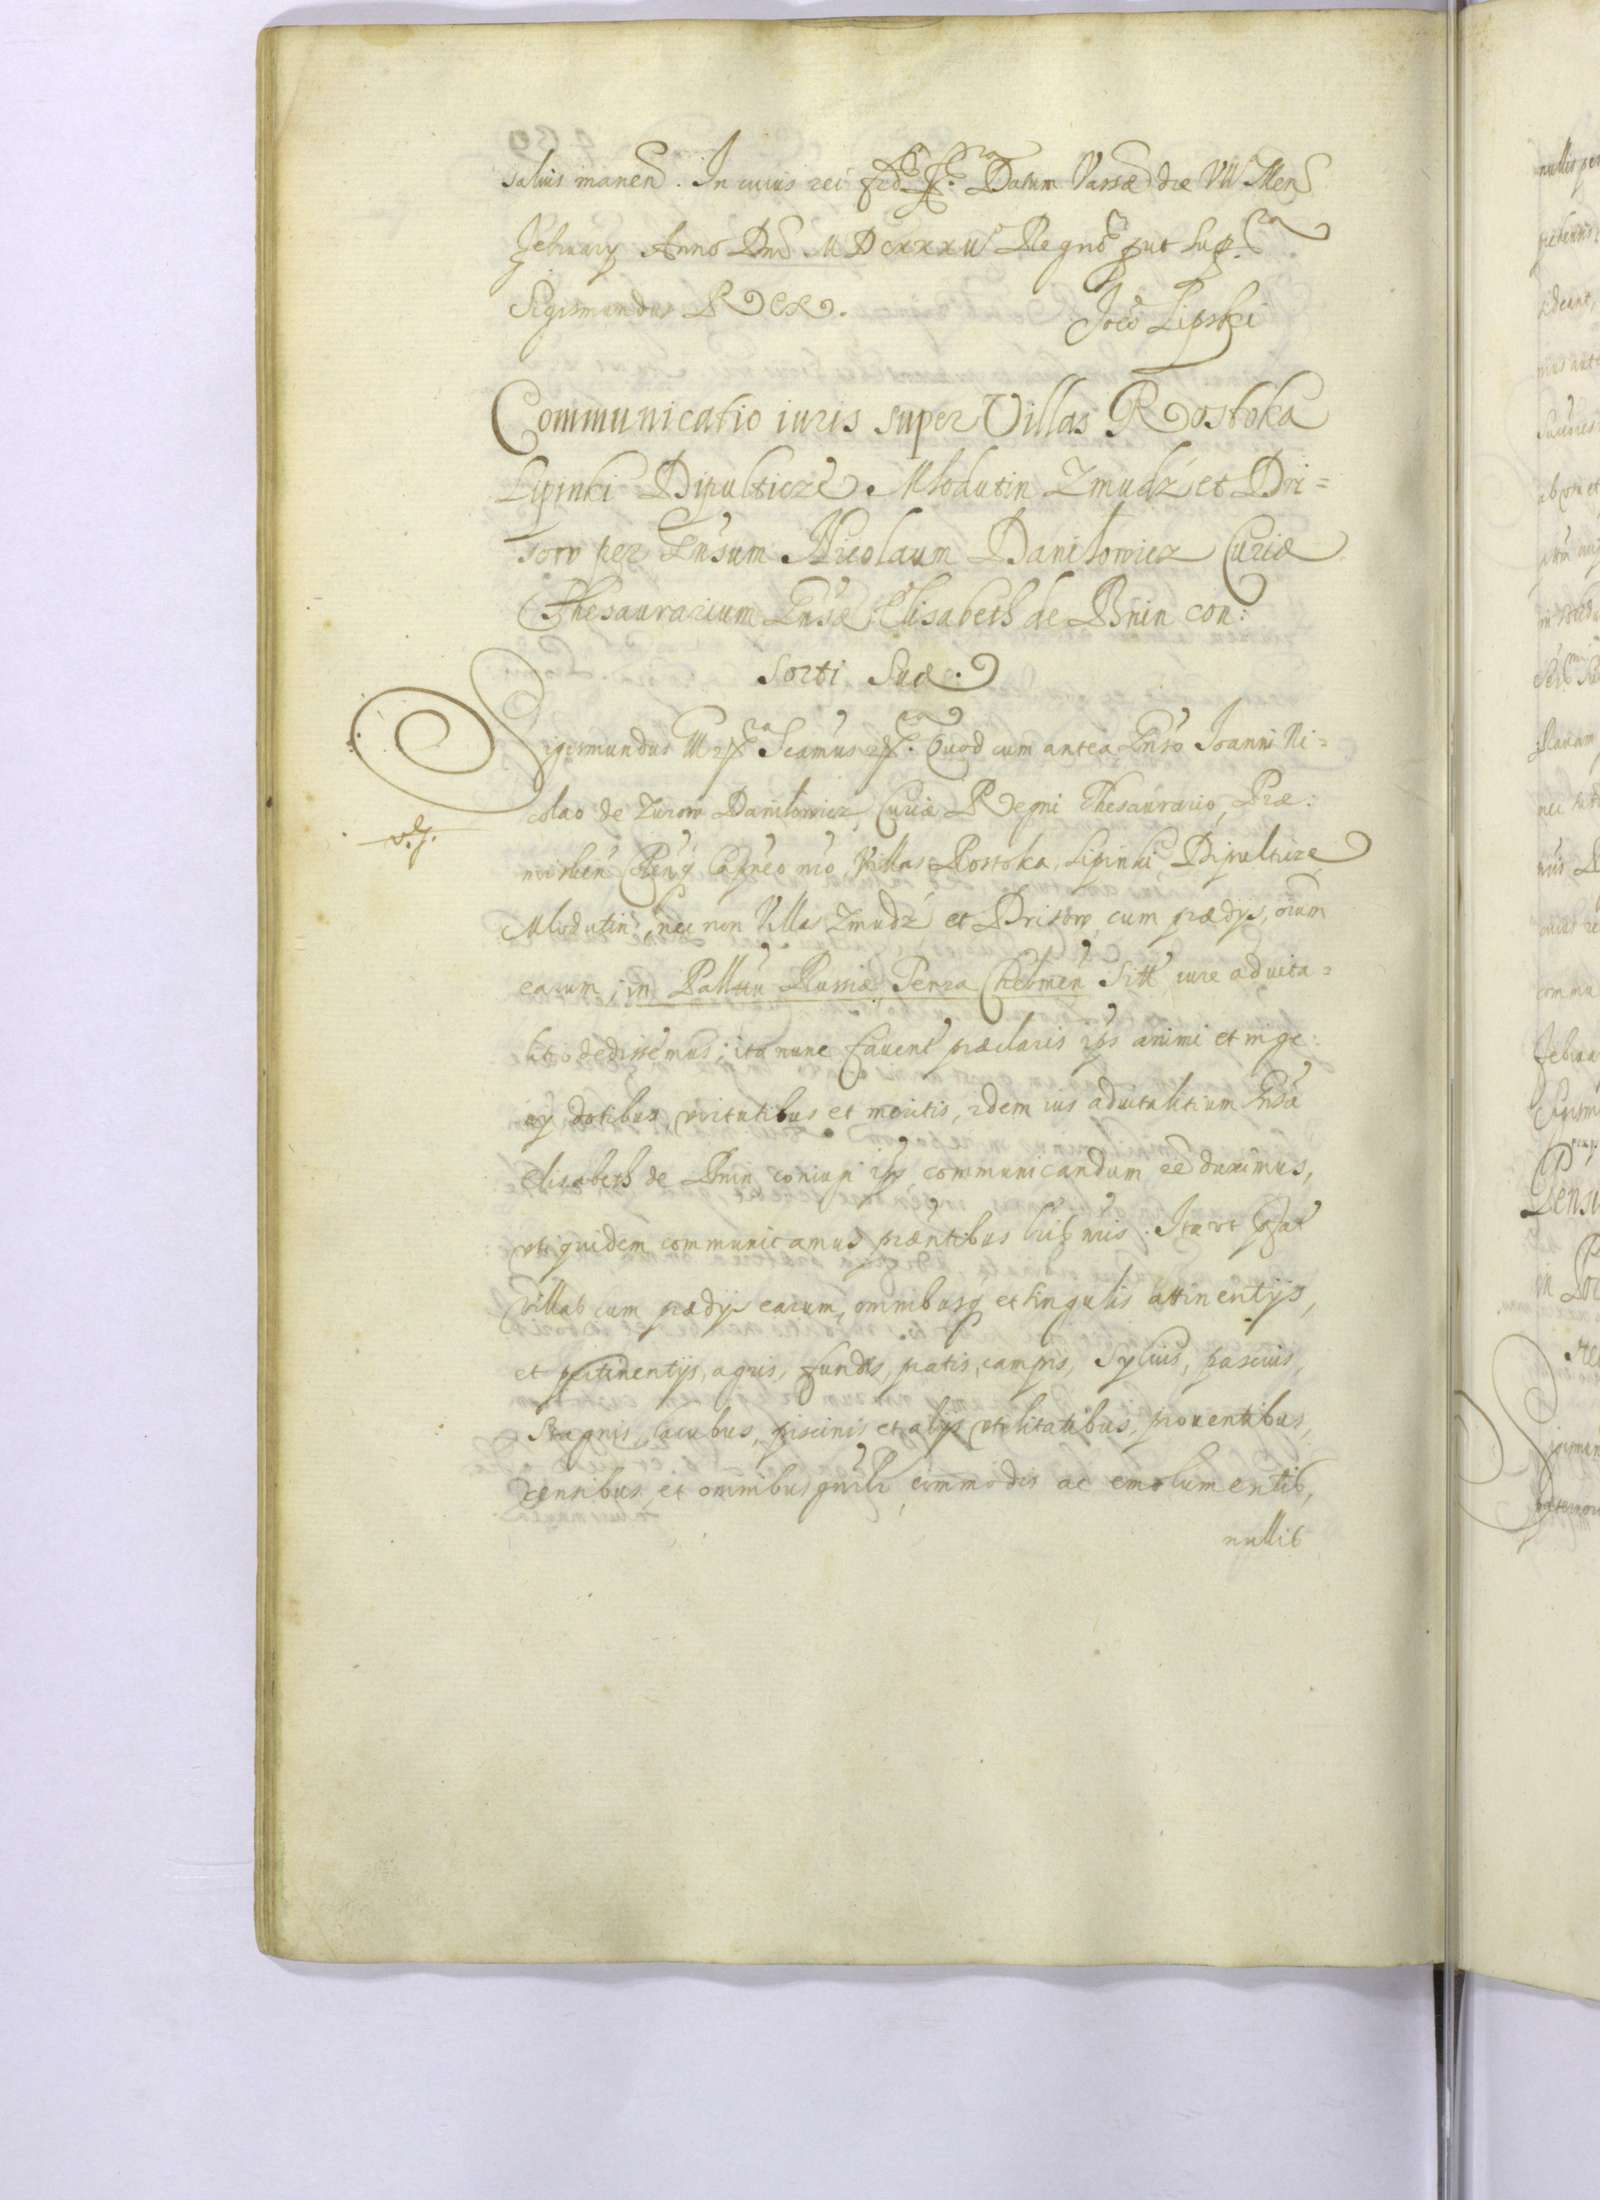 saluis manen. In cuius rei fid. Datum Varsae die VIII Men
February Anno Dni MDCXXXII Regno put sup
Sigismundus Rex.
Jacob Lipski
Communicatio iuris super Villas Rostoka
Lipinki Dipulticze Mlodutin Zmudz et Dri=
sow per Gnsum Nicolaum Danilowicz Curiae
Thesaurarium Gnsae Elisabeth de Bnin con:
sorti Suae.
Sigismundus III Scamus Quod cum antea Gnso Joanni Ni=
colao de Zurow Danilowicz Curiae Regni Thesaurario, Prae:
mislien Capneo nro, Villas Rostoka, Lipinki, Dipultize
Mlodutin, nec non Villas Zmudz et Drisow, cum praedijs, oium
earum, in Pallnu Russiae Terra Chelmen Sitt iure aduita=
litio dedissemus; ita nunc fauent praeclaris ips animi et inge:
nij dotibus, virtutibus et meritis, idem ius aduitalitium Gnsa
Elisabeth de Bnin coniugi ips communicandum ee duximus,
vti quidem communicamus praentibus lrib nris. Ita vt
villas cum praedijs earum, omnibusq et singulis attinentijs,
et pertinentijs, agris, fundis, pratis, campis, Syluis, pascuis,
Stagnis, lacubus, piscinis et alijs vtilitatibus, prouentibus,
censibus, et omnibus gnrlr commodis ac emolumentib,
nullib